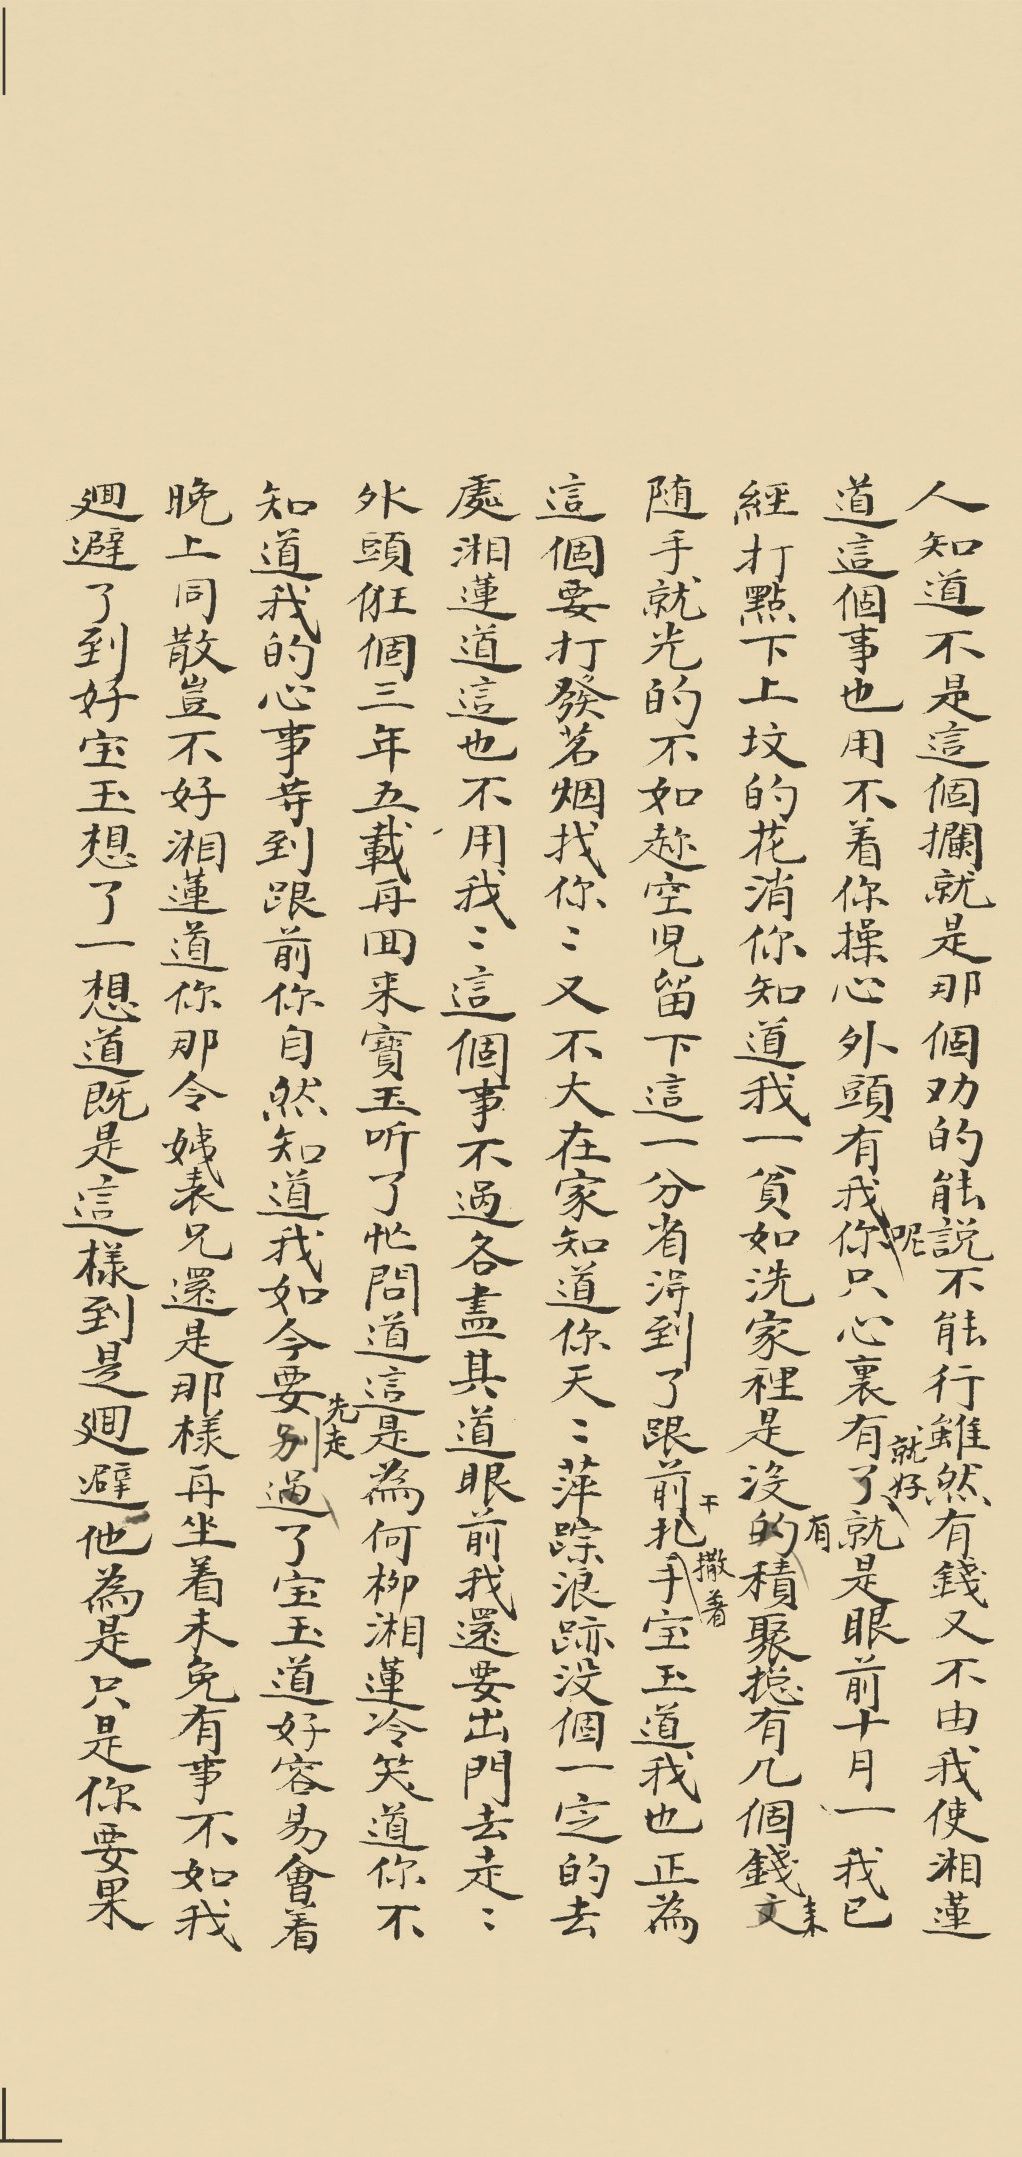 人知道不是這個攔就是那個劝的能說不能行雖然有錢又不由我使湘蓮
道這個事也用不着你操心外頭有我你呢只心裏有了就好就是眼前十月一我已
經打點下上坟的花消你知道我一貧如洗家裡是没的有積聚揔有几個錢文来
随手就光的不如趂空児留下這一分省淂到了跟前扎干手撒着宝玉道我也正為
這個要打發茗烟找你〻又不大在家知道你天〻萍踪浪跡没個一定的去
處湘蓮道這也不用我〻這個事不過各盡其道眼前我還要出門去走〻
外頭俇個三年五載再回来寳玉听了忙問道這是為何柳湘蓮冷笑道你不
知道我的心事䓁到跟前你自然知道我如今要先走别過了宝玉道好容易會着
晚上同散豈不好湘蓮道你那令姨表兄還是那樣再坐着未免有事不如我
廻避了到好宝玉想了一想道既是這樣到是廻避他為是只是你要果